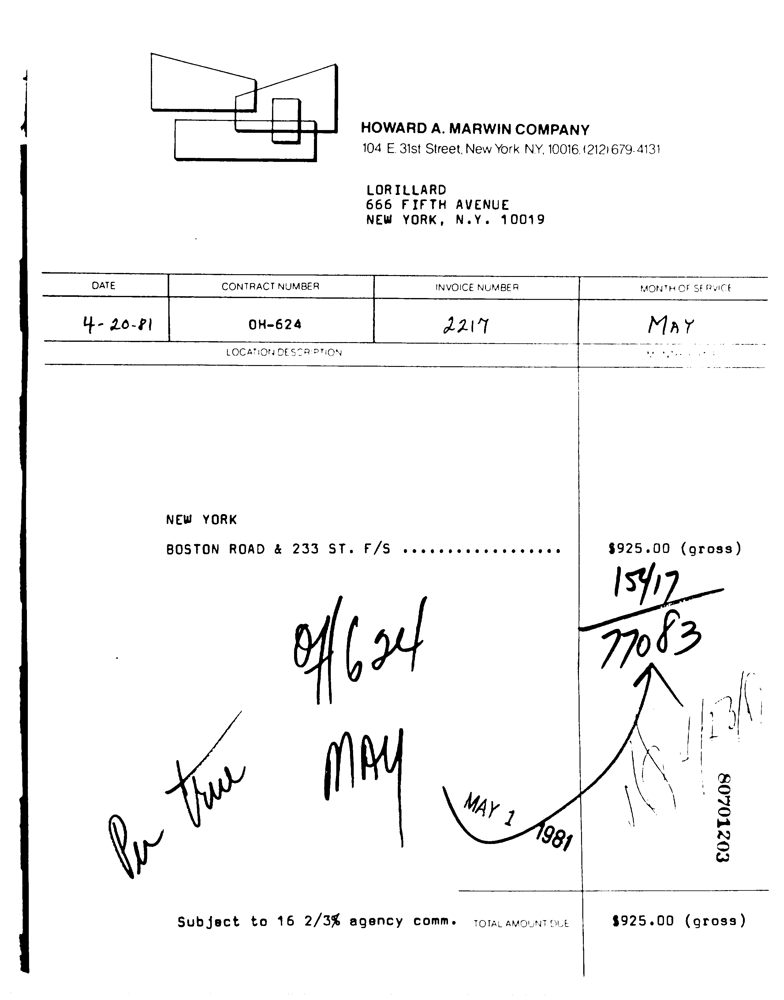 HOWARD A. MARWIN COMPANY
104 E. 31st Street, New York NY, 10016, (212) 679-4131
LORILLARD
666 FIFTH AVENUE
NEW YORK, N.Y. 10019
DATE CONTRACT NUMBER INVOICE NUMBER MONTH OF SERVICE
4-20-81 OH-624 2217 MAY
LOCATION DESCRIPTION
NEW YORK
BOSTON ROAD & 233 ST. F/S .................. $925.00 (gross)
154/17
77083
OH 624
MAY
Per true
MAY 1 1981
80701203
Subject to 16 2/3% agency comm. TOTAL AMOUNT DUE $925.00 (gross)